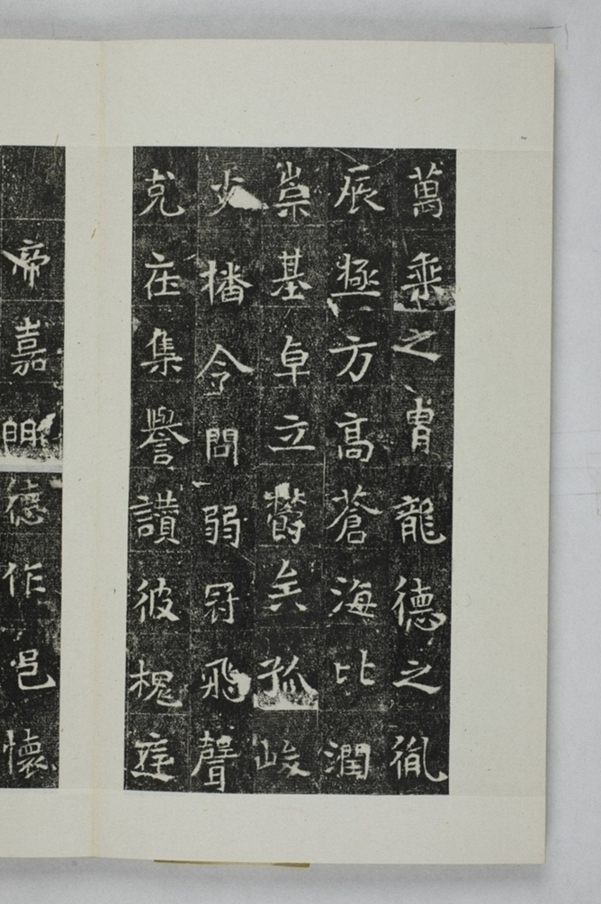 萬乘之胄龍德之胤
辰極方高蒼海比潤
崇基卓立鬱矣孤峻
少播令問弱冠飛聲
克庄集譽讚彼槐庭
帝嘉明德作邑懷